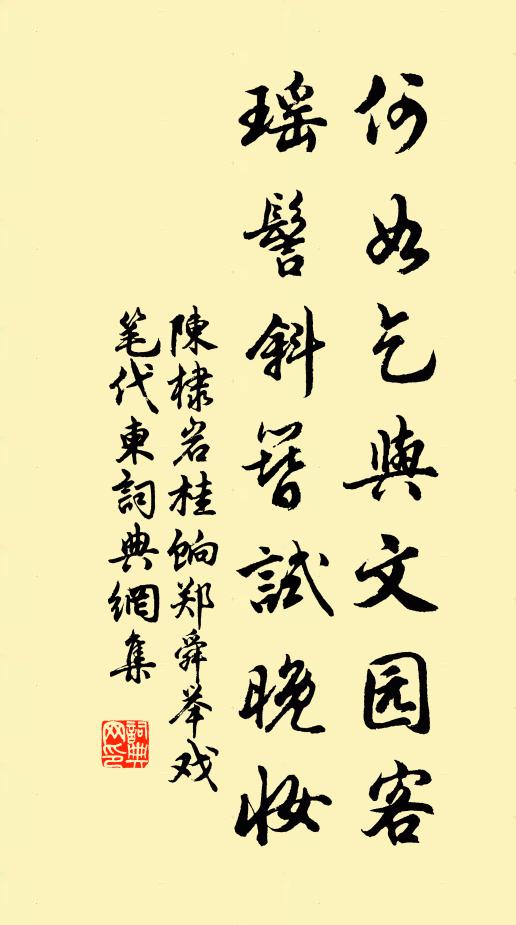 何如乞與文园客
瑶髻斜簪試晚妝
陳棣岩桂餉郑舜举戏
笔代東詞典網集
詞典網印